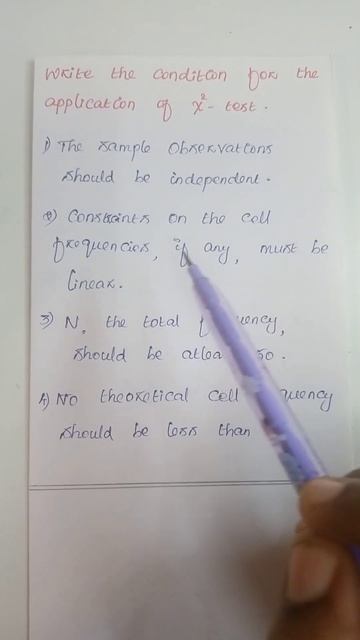 Write the condition for the
application of x²- test.
1) The sample observations
should be independent.
2) Constraints on the cell
frequencies, if any, must be
linear.
3) N, the total
should be 50.
4) No theoretical cell
should be less than